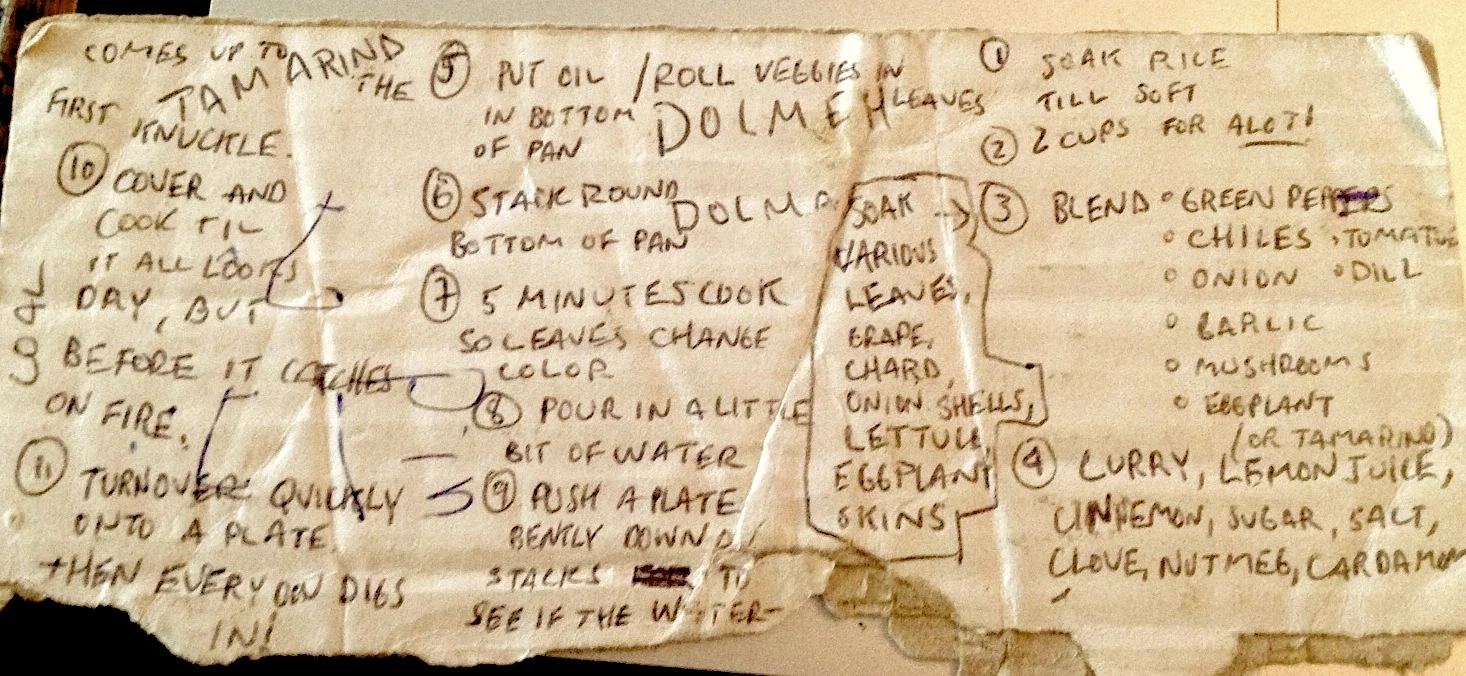 ① SOAK RICE
TILL SOFT
② 2 CUPS FOR ALOT!
③ BLEND ° GREEN PEPPERS
° CHILES ° TOMATOE
° ONION ° DILL
° GARLIC
° MUSHROOMS
° EGGPLANT
(OR TAMARIND)
④ CURRY, LEMON JUICE,
CINNEMON, SUGAR, SALT,
CLOVE, NUTMEG, CARDAMOM
SOAK →
VARIOUS
LEAVES,
GRAPE,
CHARD,
ONION SHELLS,
LETTUCE
EGGPLANT
SKINS
DOLMEH
DOLMA
⑤ PUT OIL / ROLL VEGGIES IN
IN BOTTOM LEAVES
OF PAN
⑥ STACK ROUND
BOTTOM OF PAN
⑦ 5 MINUTES COOK
SO LEAVES CHANGE
COLOR
⑧ POUR IN A LITTLE
BIT OF WATER
⑨ PUSH A PLATE
GENTLY DOWN
STACKS TO
SEE IF THE WATER-
COMES UP TO
TAMARIND
THE
FIRST
KNUCKLE.
⑩ COVER AND
COOK TIL
IT ALL LOOKS
DRY, BUT
BEFORE IT CATCHES
ON FIRE.
⑪ TURNOVER QUICKLY
ONTO A PLATE.
THEN EVERYON DIGS
IN!